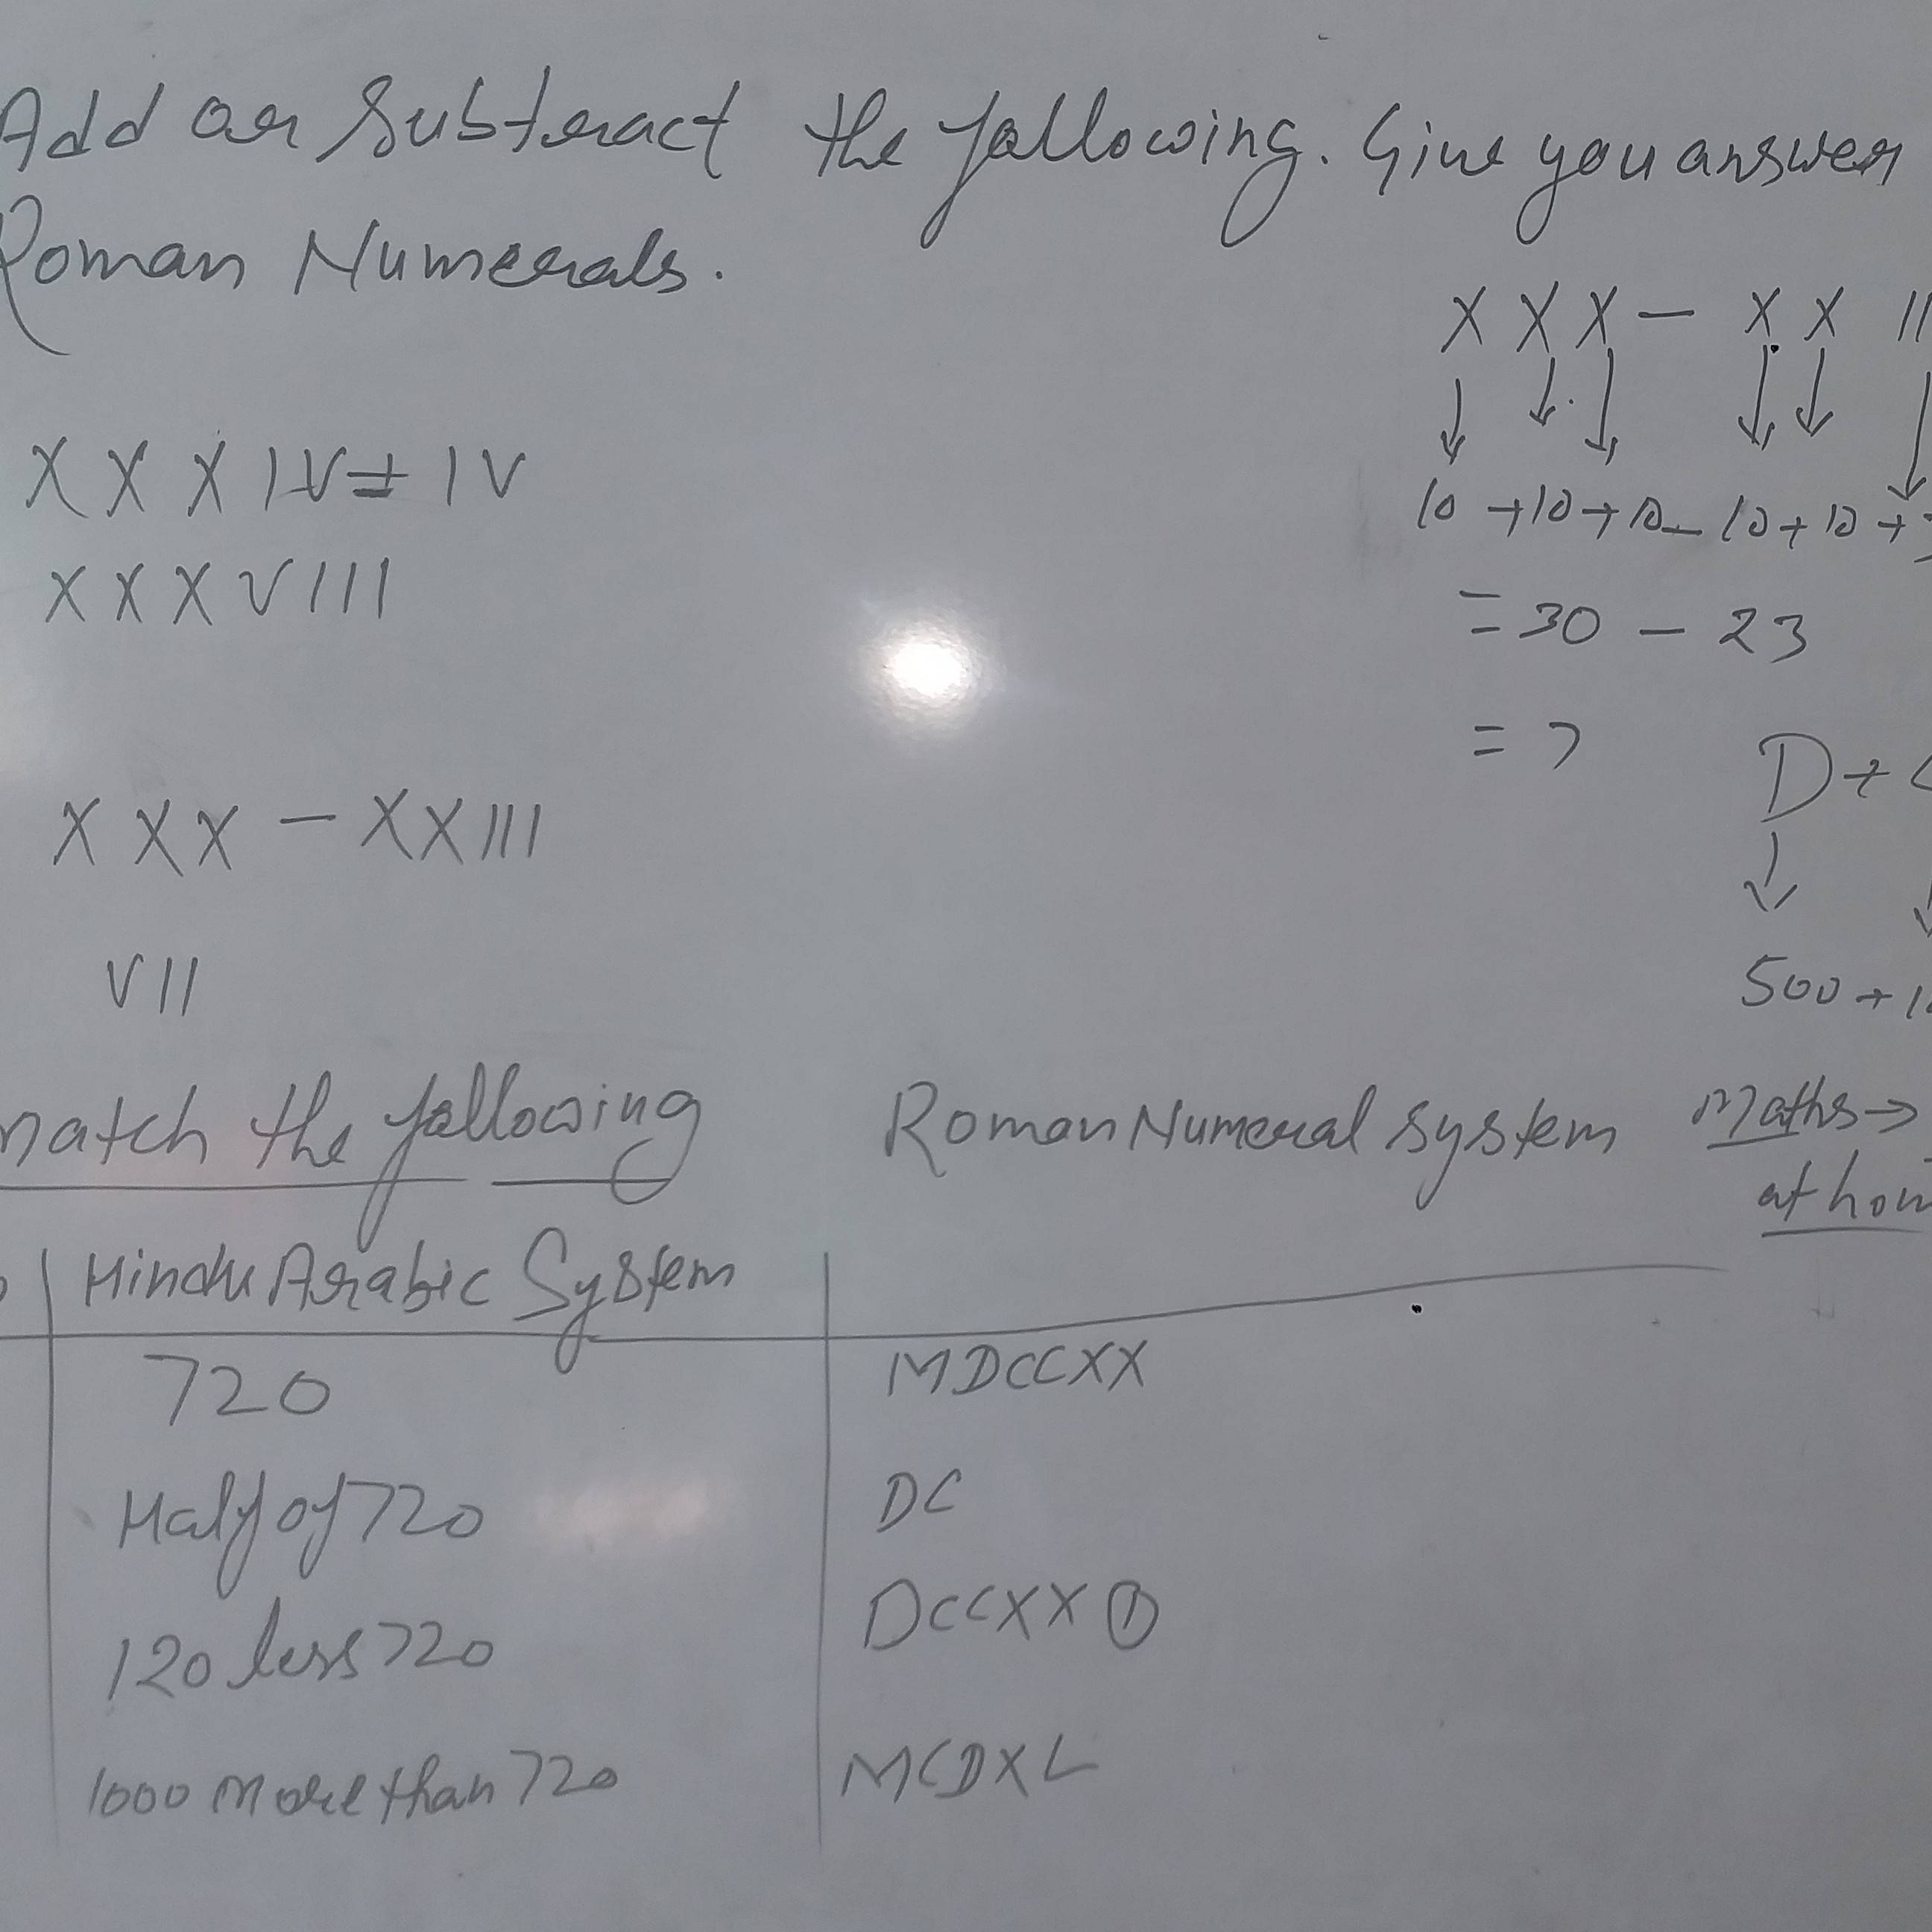 Add or Subtract the following. Give you answer
Roman Numerals.
XXX - XX II
10 +10+10-10+10+
= 30 - 23
= 7
XXXIV + IV
XXXVIII
XXX - XXIII
VII
D+
500+1
match the following
Roman Numeral System
Maths→
at hom
Hindu Arabic System
720
MDCCXX
Half of 720
DC
120 less 720
DCCXX ①
1000 More than 720
MCDXL